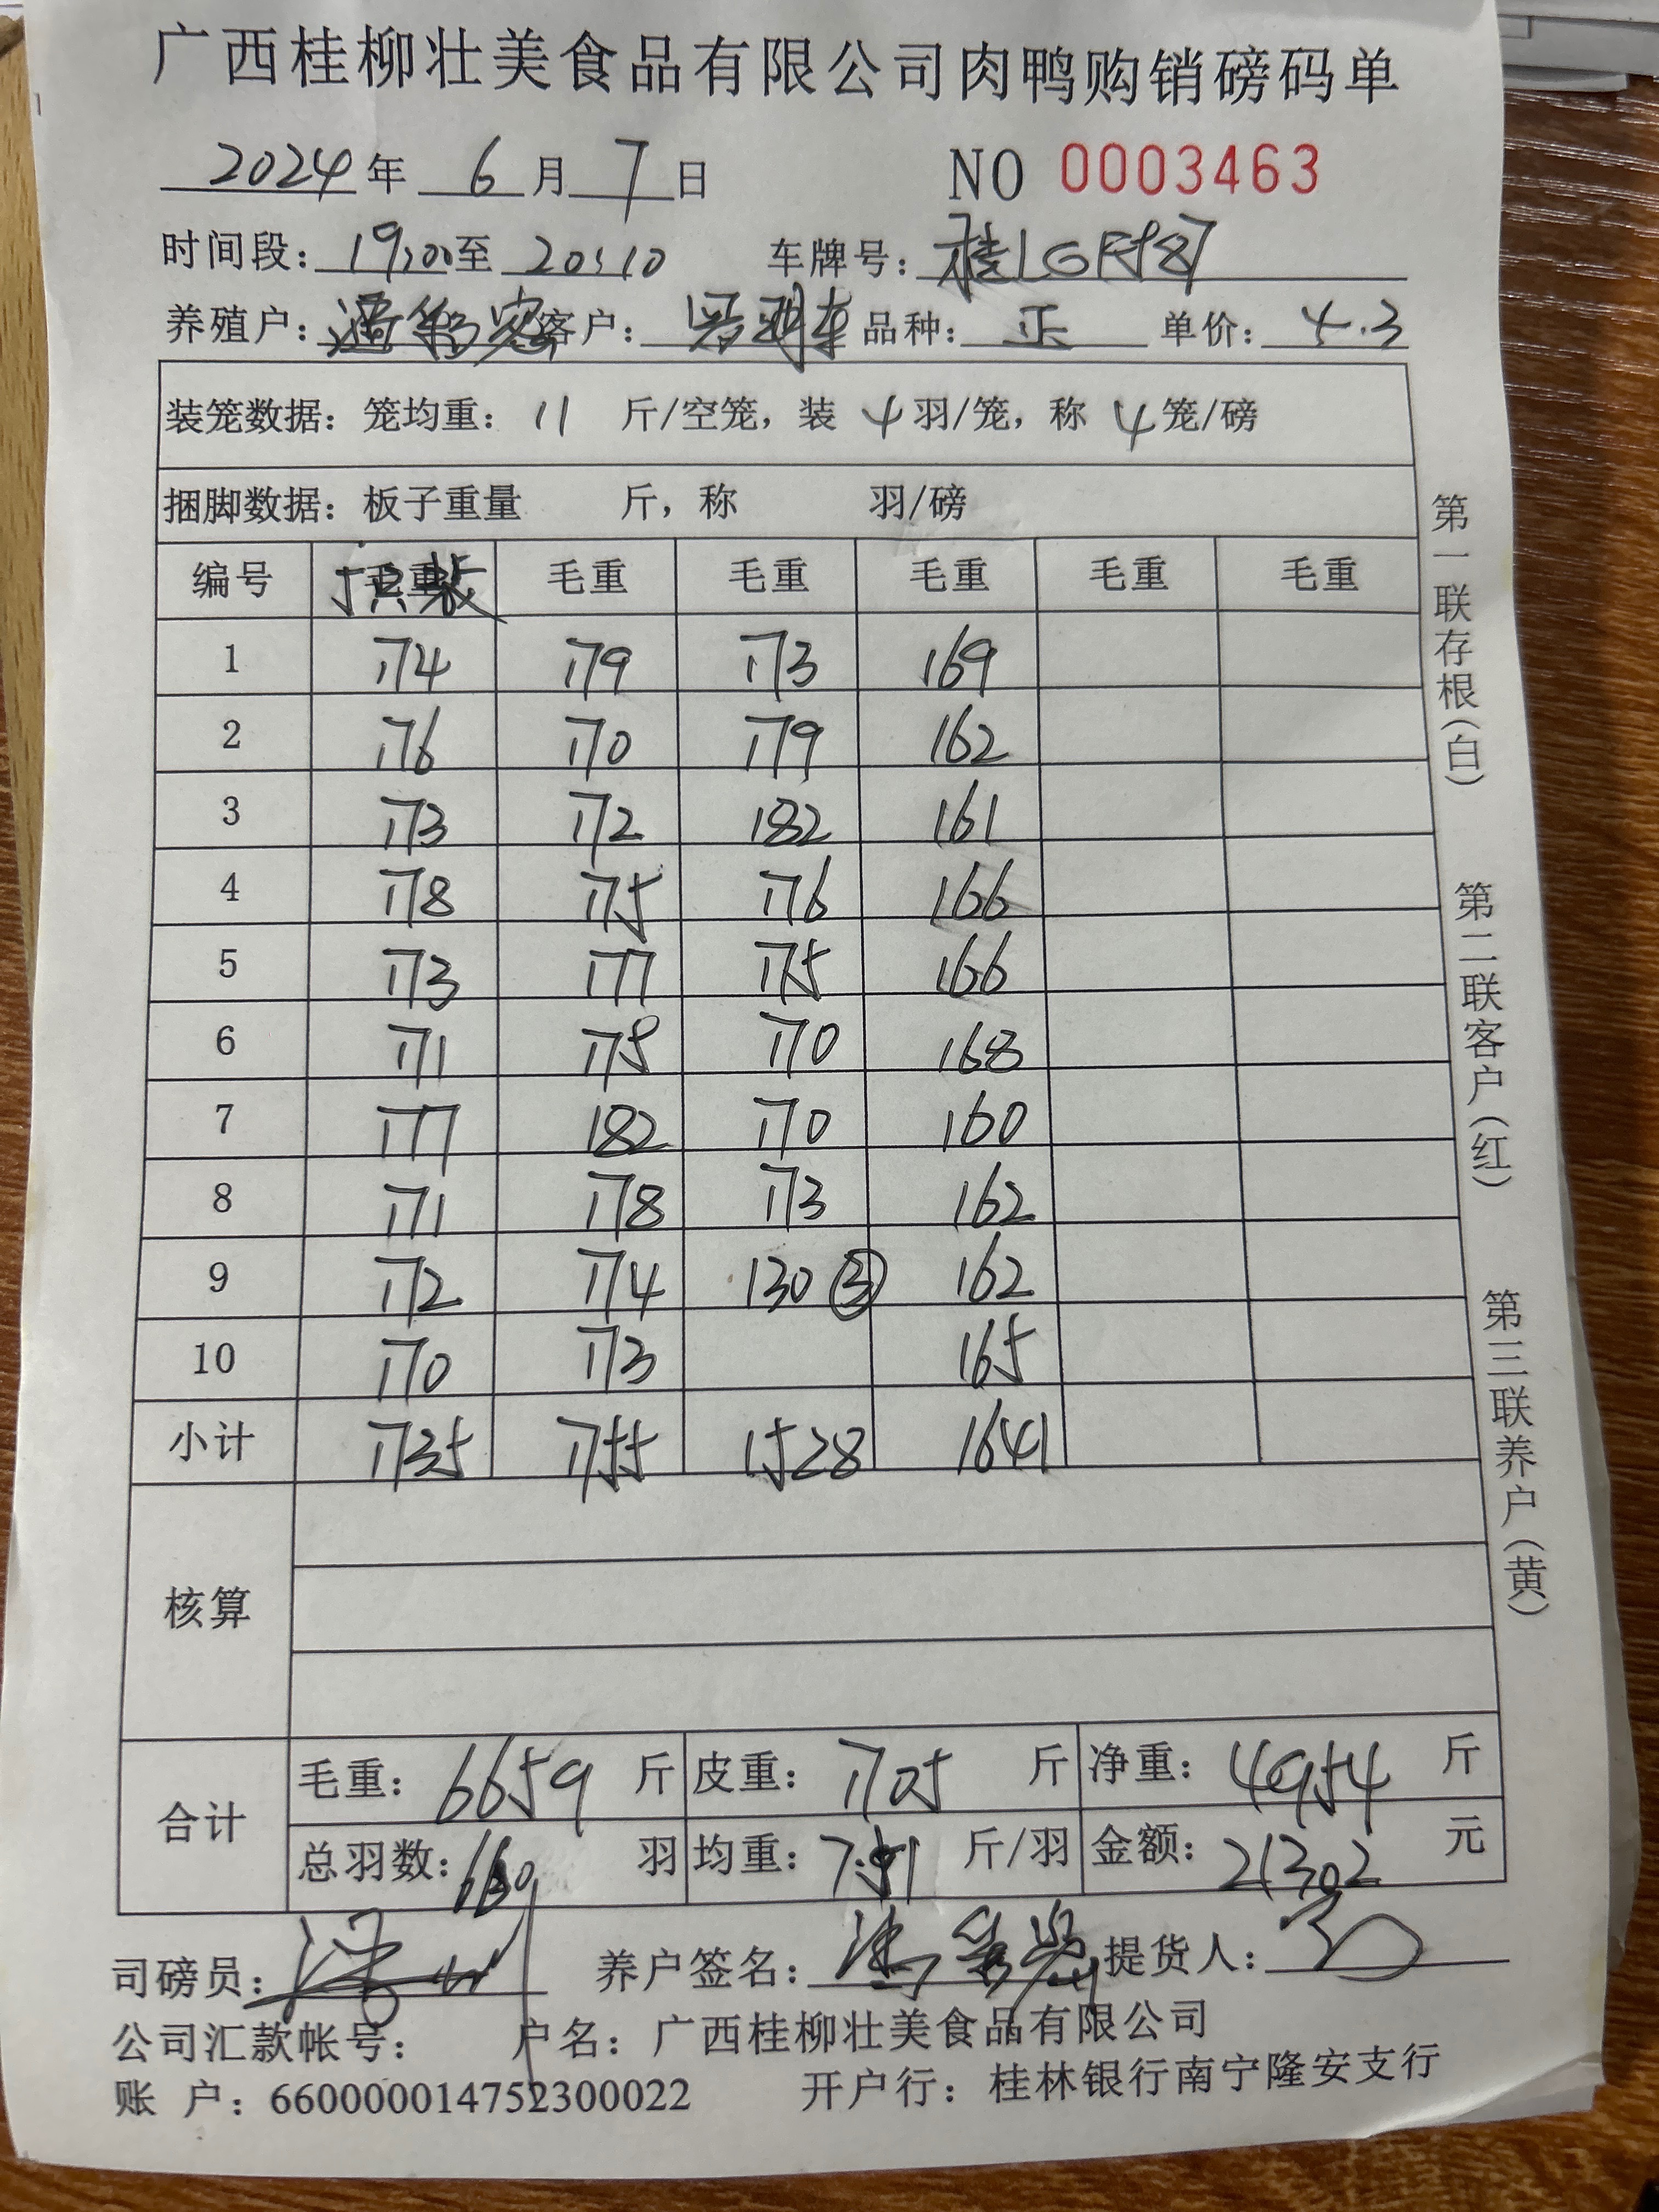 广西桂柳壮美食品有限公司肉鸭购销磅码单
2024年 6月 7日 NO 0003463
时间段：19:00至 20:10 车牌号：桂1
养殖户： 客户： 品种：正 单价：4.3
装笼数据：笼均重：11 斤/空笼，装 4 羽/笼，称 4 笼/磅
捆脚数据：板子重量 斤，称 羽/磅
编号 毛重 毛重 毛重 毛重 毛重 毛重
1 174 179 173 169
2 176 170 179 162
3 173 172 182 161
4 178 175 176 166
5 173 177 175 166
6 171 175 170 168
7 177 182 170 160
8 171 178 173 162
9 172 174 130 ③ 162
10 170 173 165
小计 1735 1755 1528 1641
核算
合计
毛重：6659 斤 皮重：1705 斤 净重：4954 斤
总羽数： 羽 均重： 斤/羽 金额：21302 元
司磅员： 养户签名： 提货人：
公司汇款帐号： 户名：广西桂柳壮美食品有限公司
账 户：660000014752300022 开户行：桂林银行南宁隆安支行
第一联存根（白）
第二联客户（红）
第三联养户（黄）